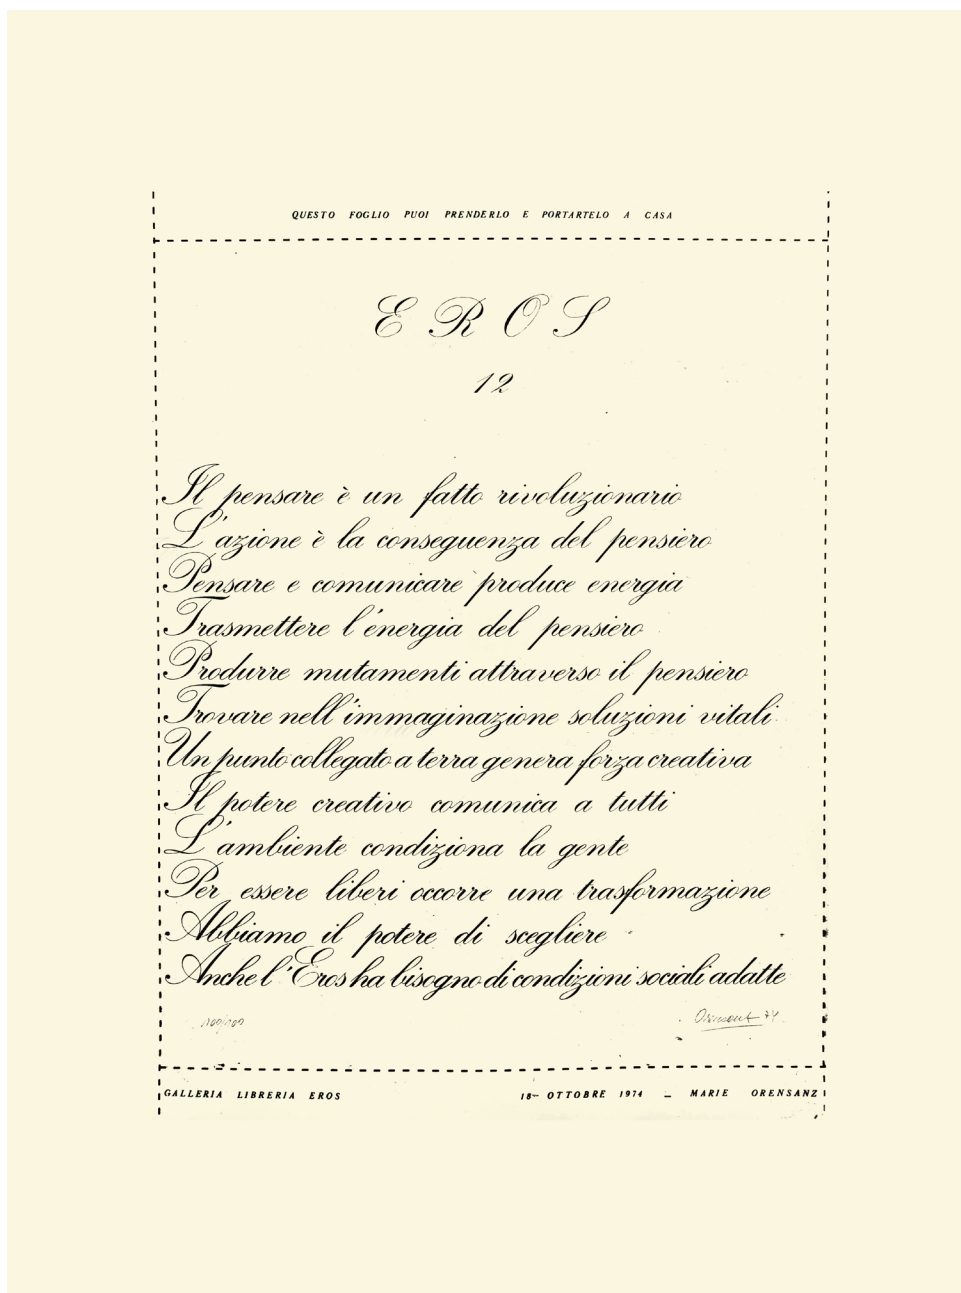 QUESTO FOGLIO PUOI PRENDERLO E PORTARTELO A CASA
EROS
12
Il pensare è un fatto rivoluzionario
L'azione è la conseguenza del pensiero
Pensare e comunicare produce energia
Trasmettere l'energia del pensiero
Produrre mutamenti attraverso il pensiero
Trovare nell'immaginazione soluzioni vitali
Un punto collegato a terra genera forza creativa
Il potere creativo comunica a tutti
L'ambiente condiziona la gente
Per essere liberi occorre una trasformazione
Abbiamo il potere di scegliere
Anche l'Eros ha bisogno di condizioni sociali adatte
100/100 Orensanz 74
GALLERIA LIBRERIA EROS 18- OTTOBRE 1974 - MARIE ORENSANZ